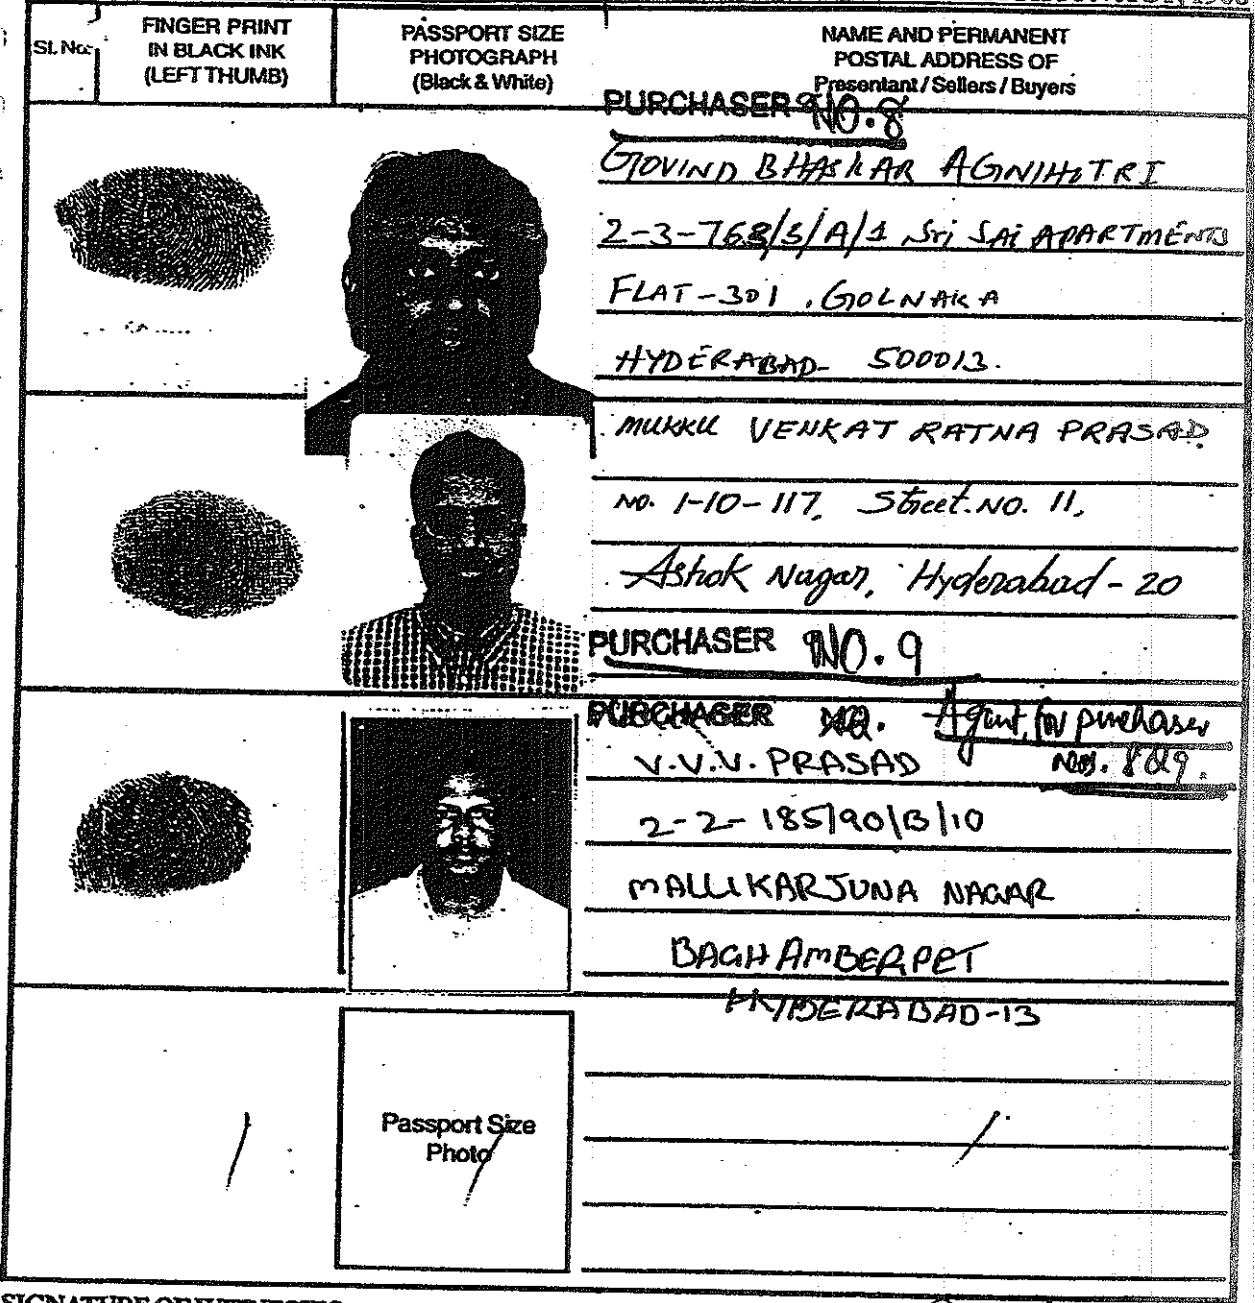 Sl. No.
FINGER PRINT
IN BLACK INK
(LEFT THUMB)
PASSPORT SIZE
PHOTOGRAPH
(Black & White)
NAME AND PERMANENT
POSTAL ADDRESS OF
Presentant / Sellers / Buyers
PURCHASER NO. 8
GOVIND BHASKAR AGNIHOTRI
2-3-768/S/A/1 Sri SAi APARTMENTS
FLAT-301, GOLNAKA
HYDERABAD- 500013.
MUKKU VENKAT RATNA PRASAD
NO. 1-10-117, Street. NO. 11,
Ashok Nagar, Hyderabad - 20
PURCHASER NO. 9
PURCHASER Agent for purchaser
V.V.V. PRASAD Nos. 8&9.
2-2-185/90/B/10
MALLIKARJUNA NAGAR
BAGH AMBERPET
HYDERABAD-13
Passport Size
Photo